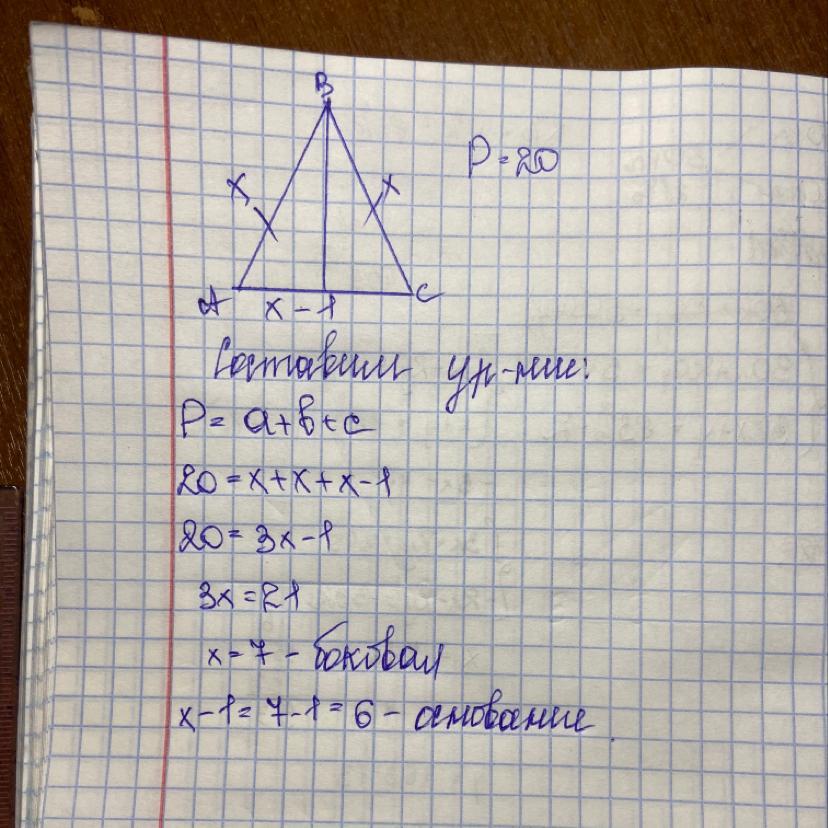 B
P = 20
x
x
A
x - 1
C
Составим ур-ние:
P = a + b + c
20 = x + x + x - 1
20 = 3x - 1
3x = 21
x = 7 - боковая
x - 1 = 7 - 1 = 6 - основание.